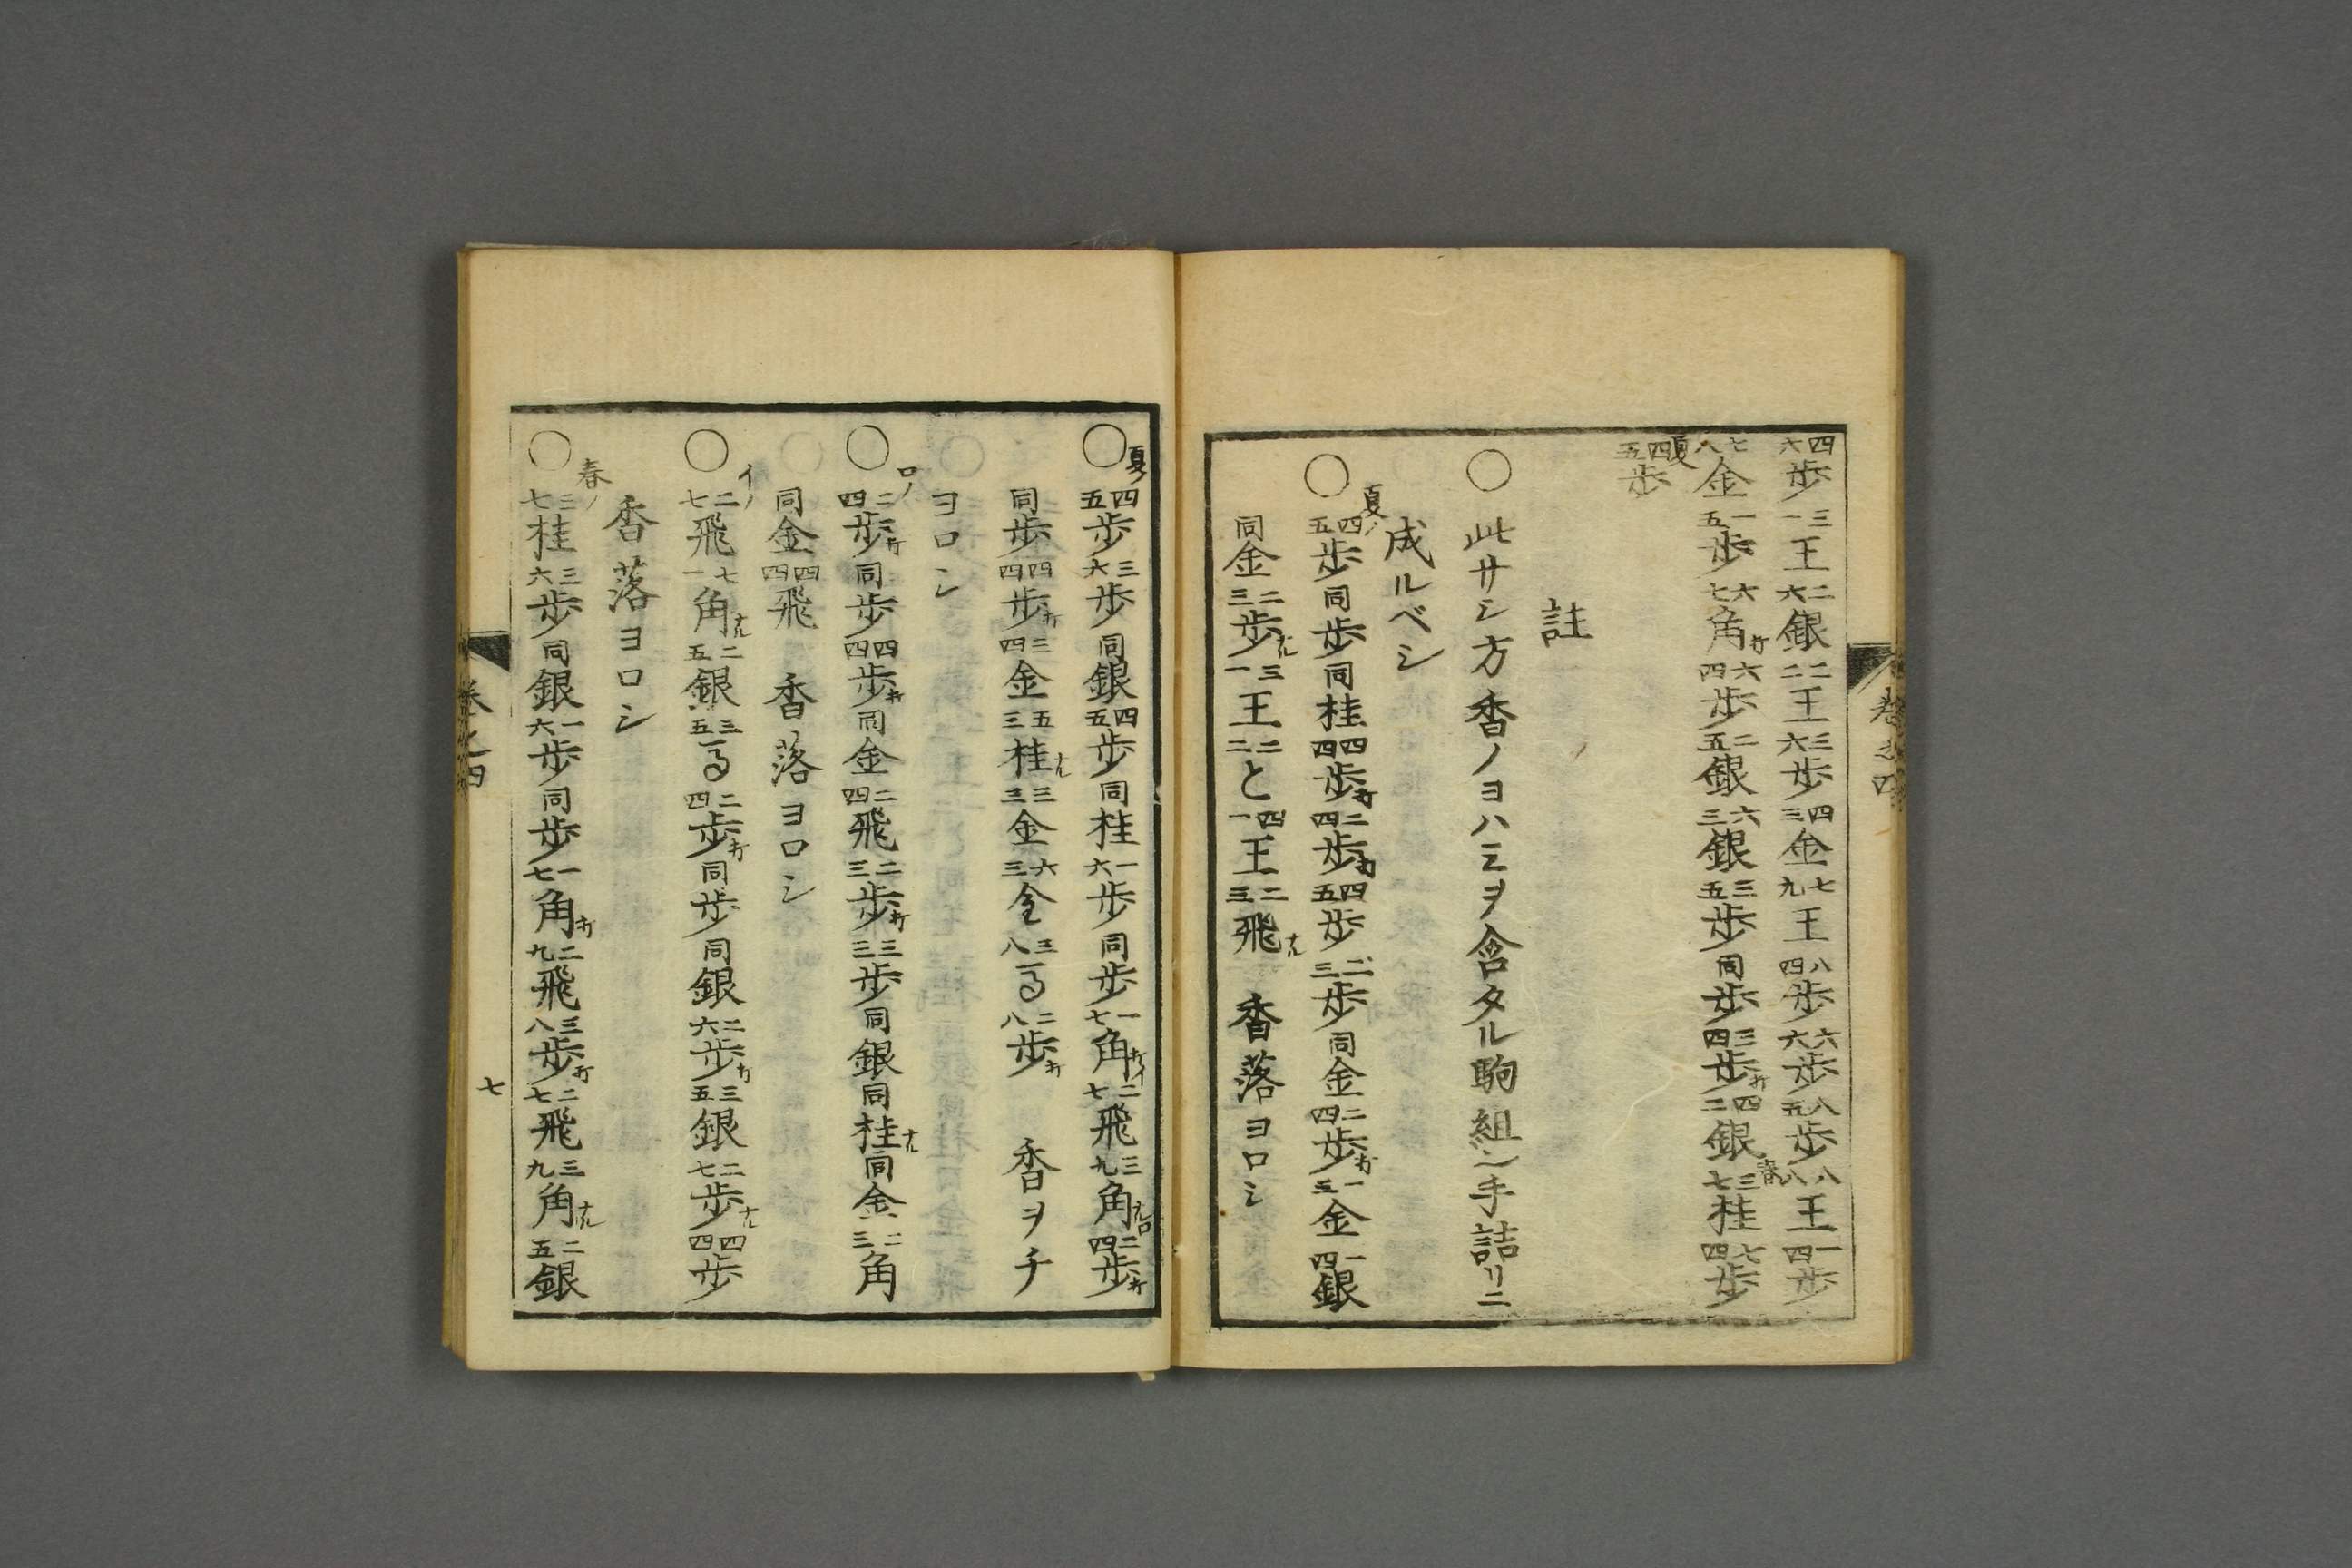 四六歩三一王二六銀二二王三六歩四三金七九王八四歩六六歩八五歩八八王一四歩
七八金一五歩六七角打六四歩二五銀六三銀三五歩同歩三四歩打四二銀春三七桂七四歩
夏四五歩
註
○此サシ方香ノヨハミヲ含タル駒組ン手詰リニ
成ルベシ
○夏ノ四五歩同歩同桂四四歩打二四歩打四五歩二三歩同金二四歩打一三金一四銀
同金二三歩ナル三一王二二と四一王二三飛ナル 香落ヨロシ
巻之四
○夏四五歩三六歩同銀四五歩同桂一六歩同歩一七角打イ二七飛三九角ナルロ二四歩打
同歩四四歩打三四金五三桂ナル三三金六三全三八馬二八歩打 香ヲチ
ヨロシ
○ロノ二四歩打同歩四四歩打同金二四飛二三歩打三三歩同銀同桂ナル同金二三角
同金四四飛 香落ヨロシ
○イノ二七飛七一角ナル二五銀三五馬二四歩打同歩同銀二六歩打三五銀二七歩ナル四四歩
香落ヨロシ
○春ノ三七桂三六歩同銀一六歩同歩一七角打二九飛三八歩打二七飛三九角ナル二五銀
巻之四 七